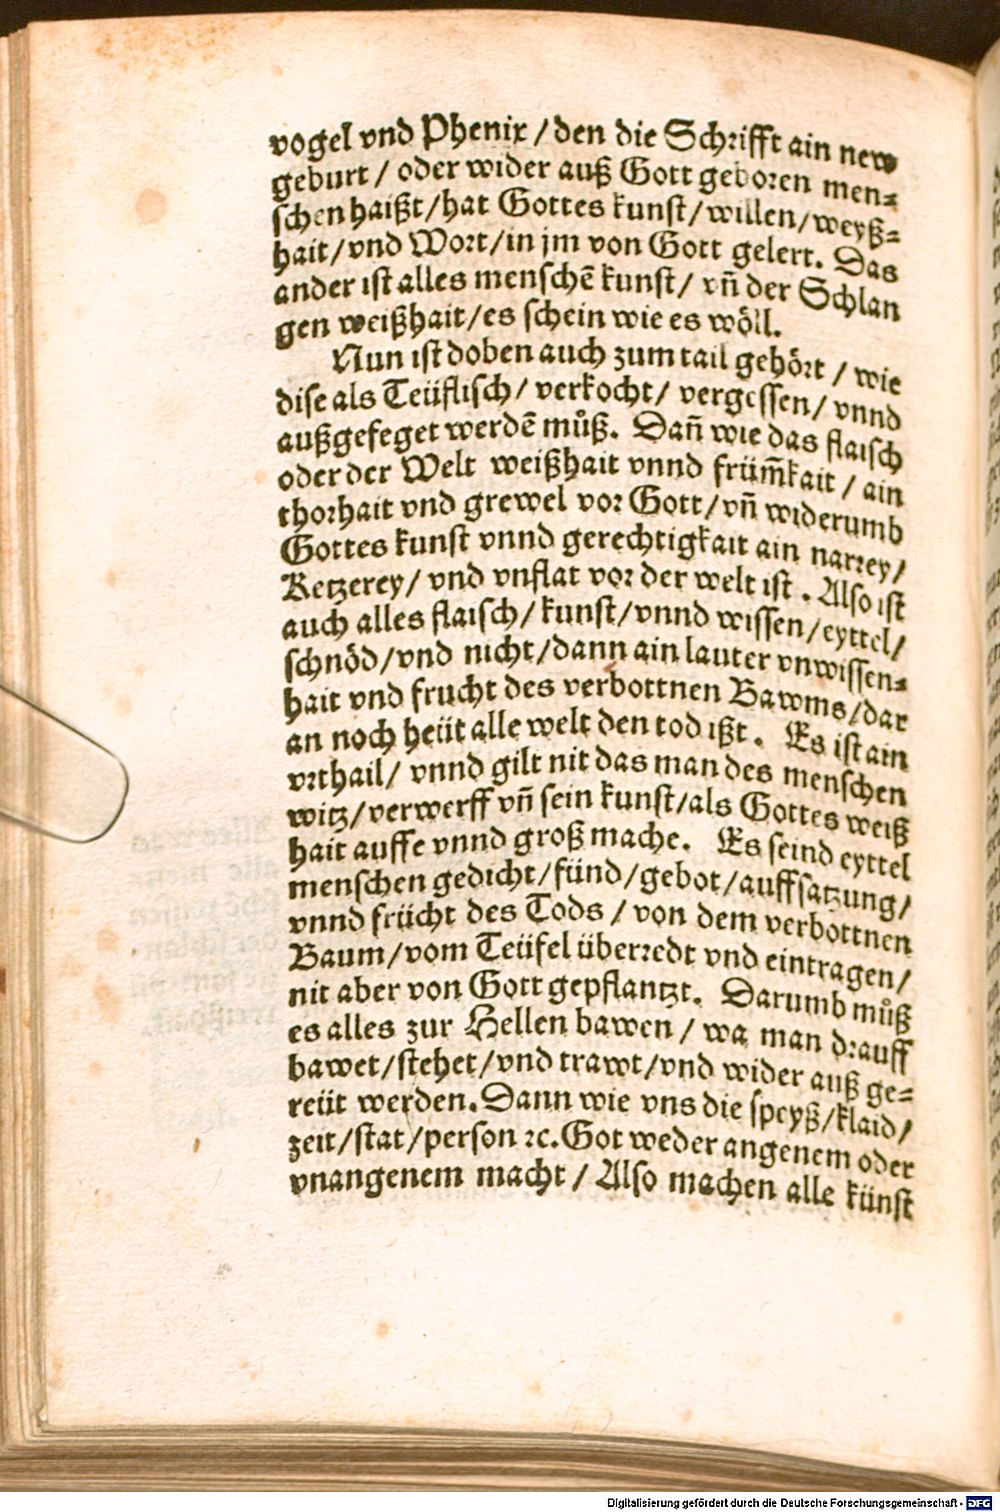 vogel vnd Phenix / den die Schrifft ain new
geburt / oder wider auß Gott geboren men⸗
schen haißt / hat Gottes kunst / willen / weyß⸗
hait / vnd Wort / in jm von Gott gelert. Das
ander ist alles menschē kunst / vñ der Schlan
gen weißhait / es schein wie es wöll.
Nun ist doben auch zum tail gehört / wie
dise als Teüflisch / verkocht / vergessen / vnnd
außgefeget werdē můß. Dañ wie das flaisch
oder der Welt weißhait vnnd früm̄kait / ain
thorhait vnd grewel vor Gott / vñ widerumb
Gottes kunst vnnd gerechtigkait ain narrey /
Ketzerey / vnd vnflat vor der welt ist . Also ist
auch alles flaisch / kunst / vnnd wissen / eyttel /
schnöd / vnd nicht / dann ain lauter vnwissen⸗
hait vnd frucht des verbottnen Bawms / dar
an noch heüt alle welt den tod ißt . Es ist ain
vrthail / vnnd gilt nit das man des menschen
witz / verwerff vñ sein kunst / als Gottes weiß
hait auffe vnnd groß mache. Es seind eyttel
menschen gedicht / fünd / gebot / auffsatzung /
vnnd frücht des Tods / von dem verbottnen
Baum / vom Teüfel überredt vnd eintragen /
nit aber von Gott gepflantzt. Darumb můß
es alles zur Hellen bawen / wa man drauff
bawet / stehet / vnd trawt / vnd wider auß ge⸗
reüt werden. Dann wie vns die speyß / klaid /
zeit / stat / person ꝛc. Got weder angenem oder
vnangenem macht / Also machen alle künst
Digitalisierung gefördert durch die Deutsche Forschungsgemeinschaft - DFG